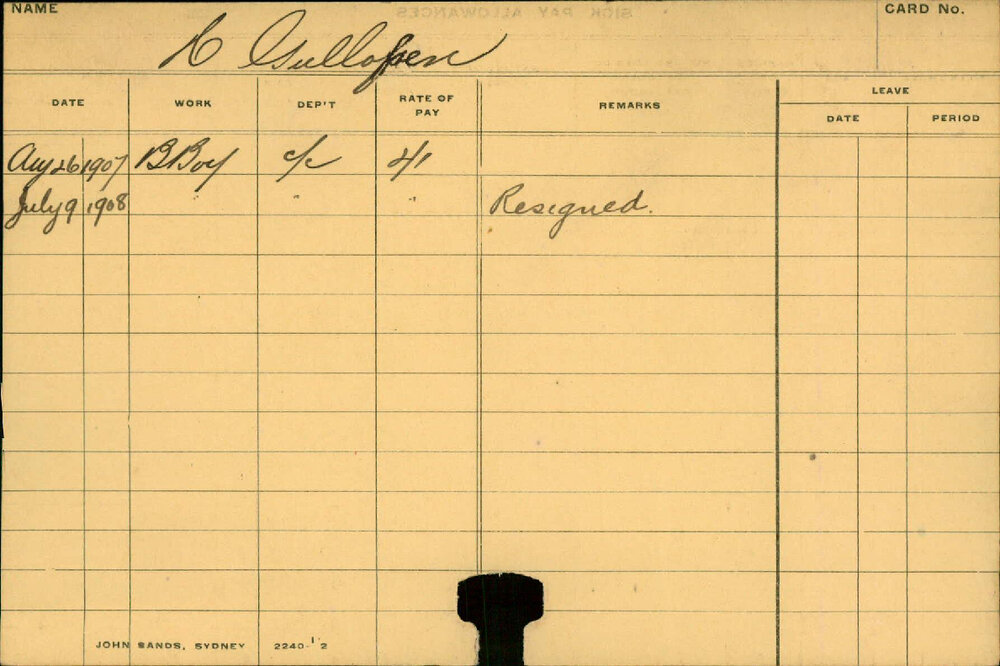 NAME
CARD No.
SICK PAY ALLOWANCES
DATE WORK DEP'T RATE OF PAY REMARKS LEAVE
DATE PERIOD
Aug 26 1907 BBoy c/c 4/1
July 9 1908 " " " Resigned.
JOHN SANDS, SYDNEY 2240-1'2